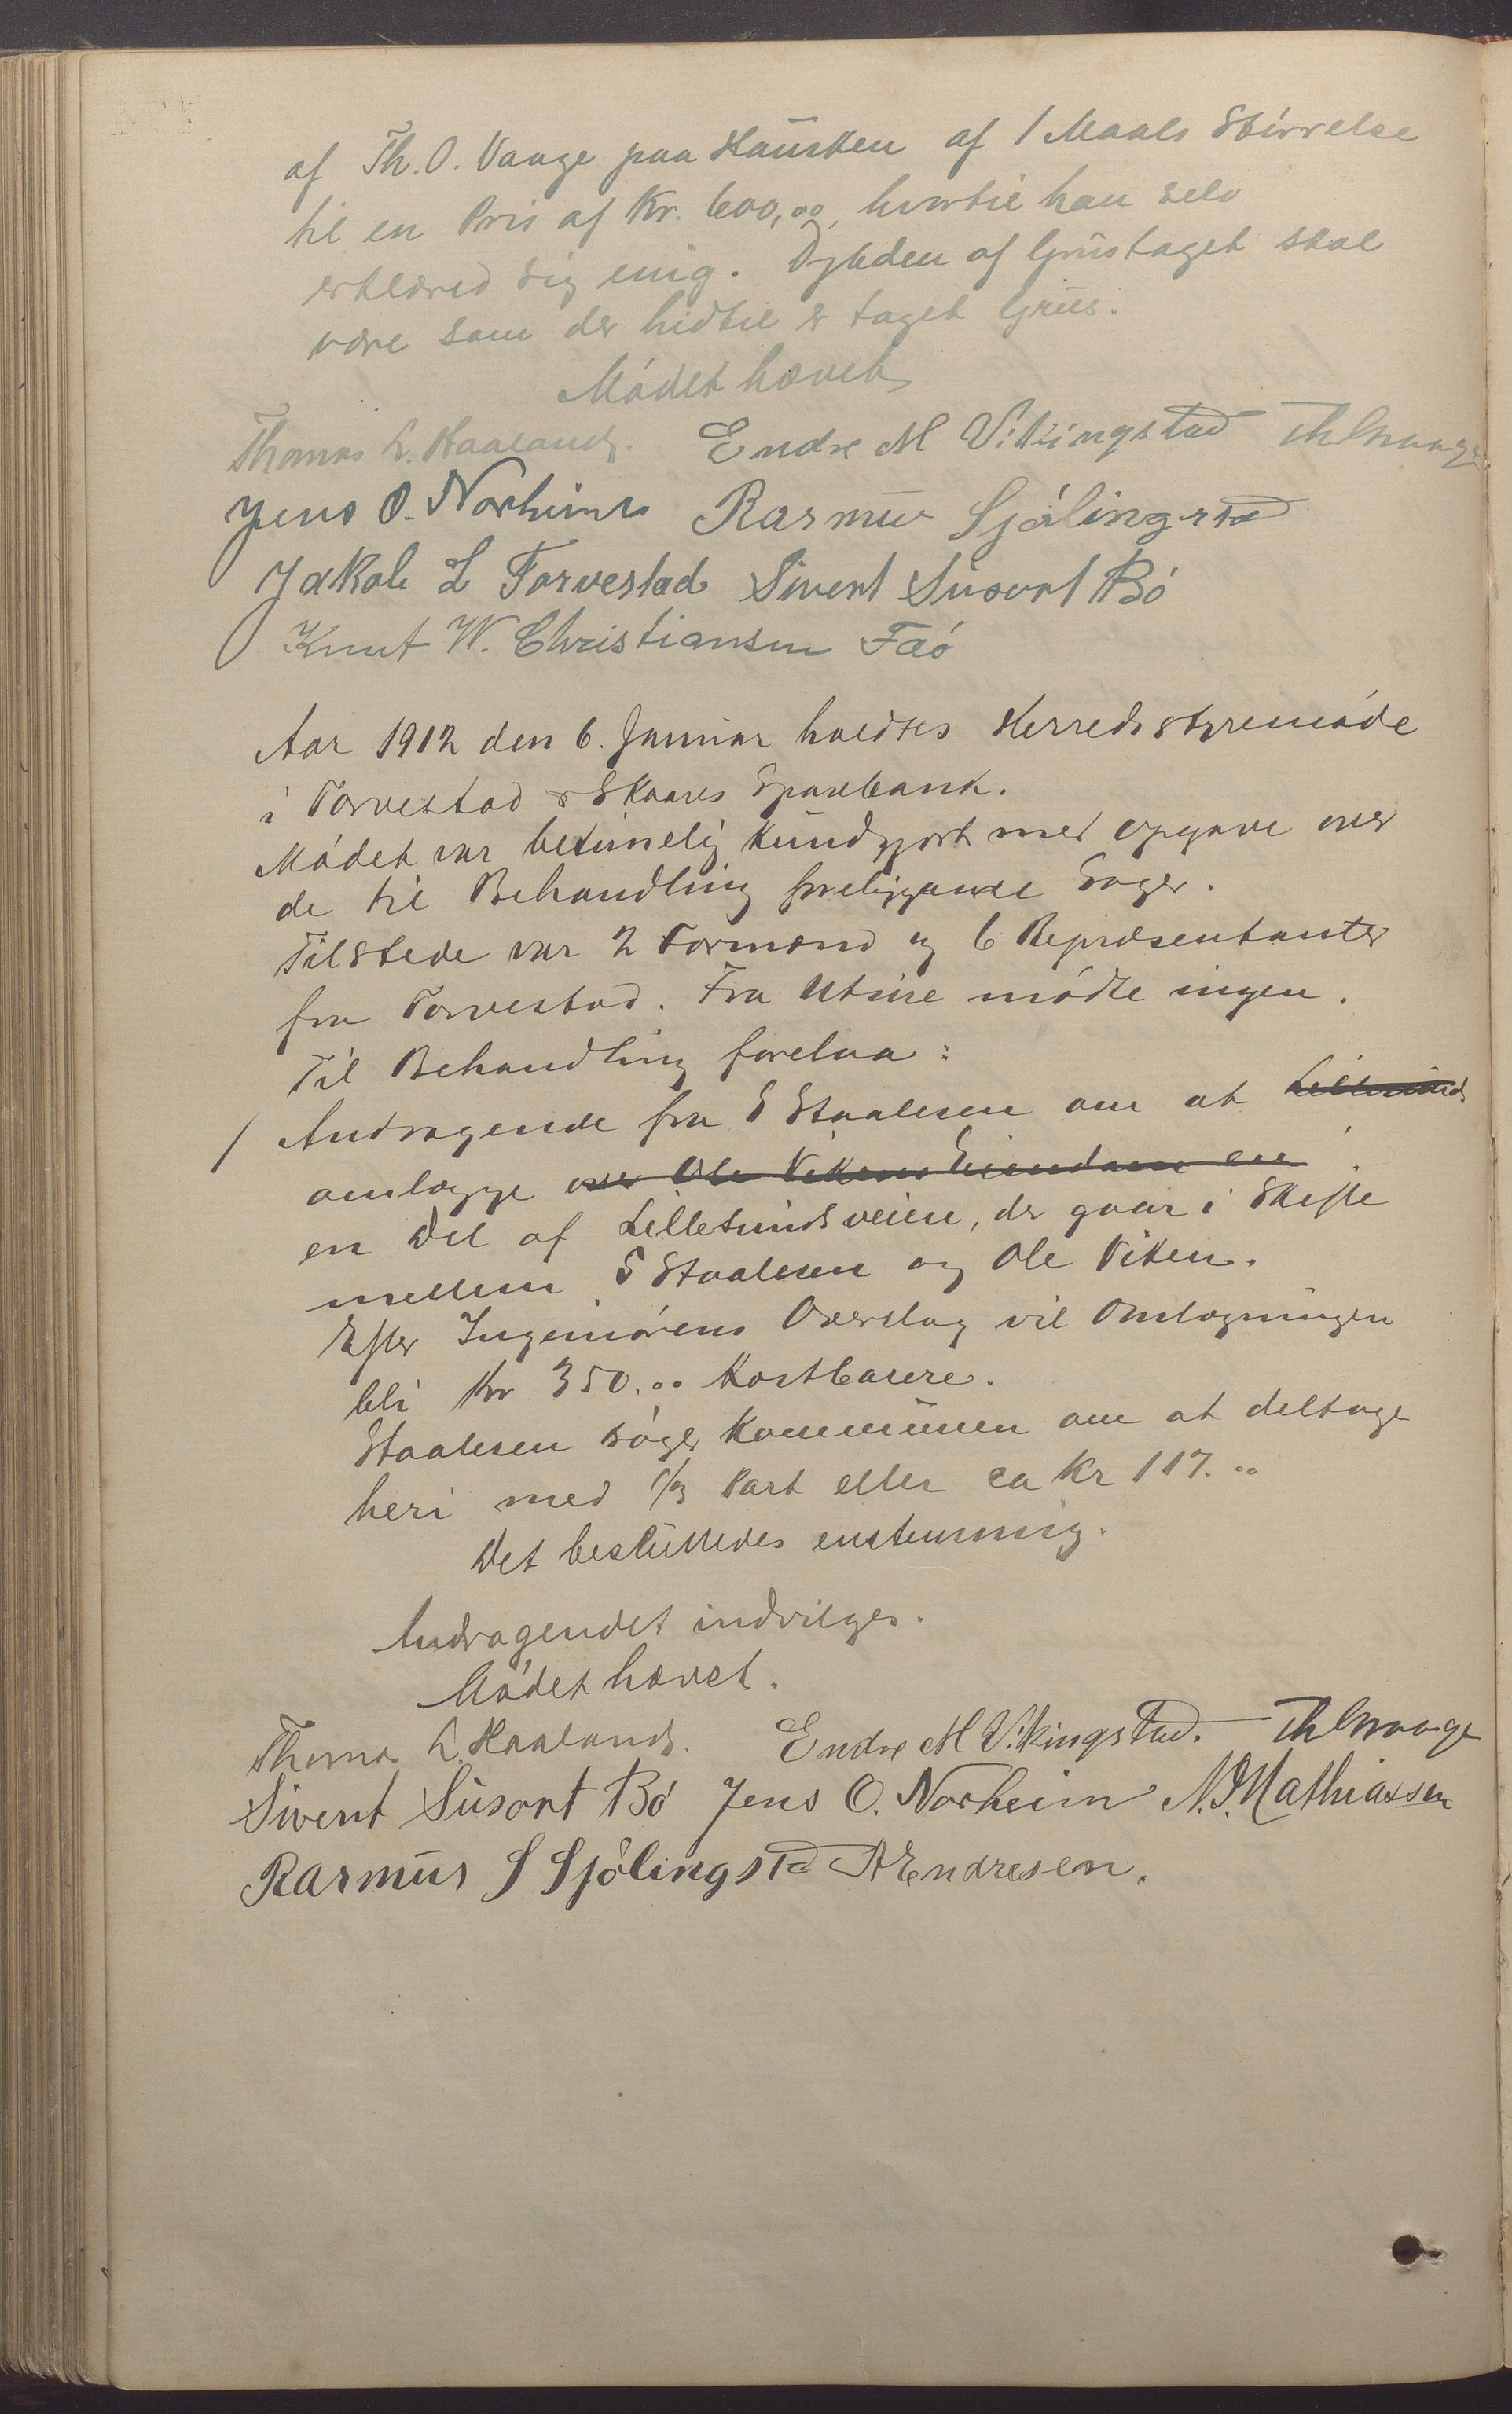 af Th. O. Vaage paa Hausken af 1 Maals Størrelse
til en Pris af Kr. 600,00, hvortil han selv
erklæred sig enig. Dybden af Grustaget skal
være som der hidtil er taget Grus.
Mödet hævet
Thomas L. Haaland. Endre M Vikingstad
Jens O. Norheim Rasmus Sjølingstad
Jakob L Torvestad Sivert Susort Bö
Knut W. Christiansen Fæö
Aar 1912 den 6. Januar holdtes Herredsstyremöde
i Torvestad & Skaares Sparebank.
Mödet var betimelig kundgjort med opgave over
de til Behandling foreliggende Sager.
Tilstede var 2 Formænd og 6 Repræsentanter
fra Torvestad. Fra Utsire mödte ingen.
Til Behandling forelaa:
1 Andragende fra S Staalesen om at Lillesunds
omlægge over Ole Vikens Eiendom en
en Del af Lillesundsveien, der gaar i Skifte
mellem S Staalesen og Ole Viken.
Efter Ingeniörens Overslag vil Omlægningen
bli Kr 350.00 kostbarere.
Staalesen söger Kommunen om at deltage
heri med 1/3 Part eller ca Kr 117.00
Det besluttedes enstemmig.
Andragendet indvilges.
Mödet hævet.
Thomas L. Haaland. Endre M Vikingstad.
Sivert Susort Bö Jens O. Norheim N. J. Mathiassen
Rasmus S Sjölingstad A Endresen.